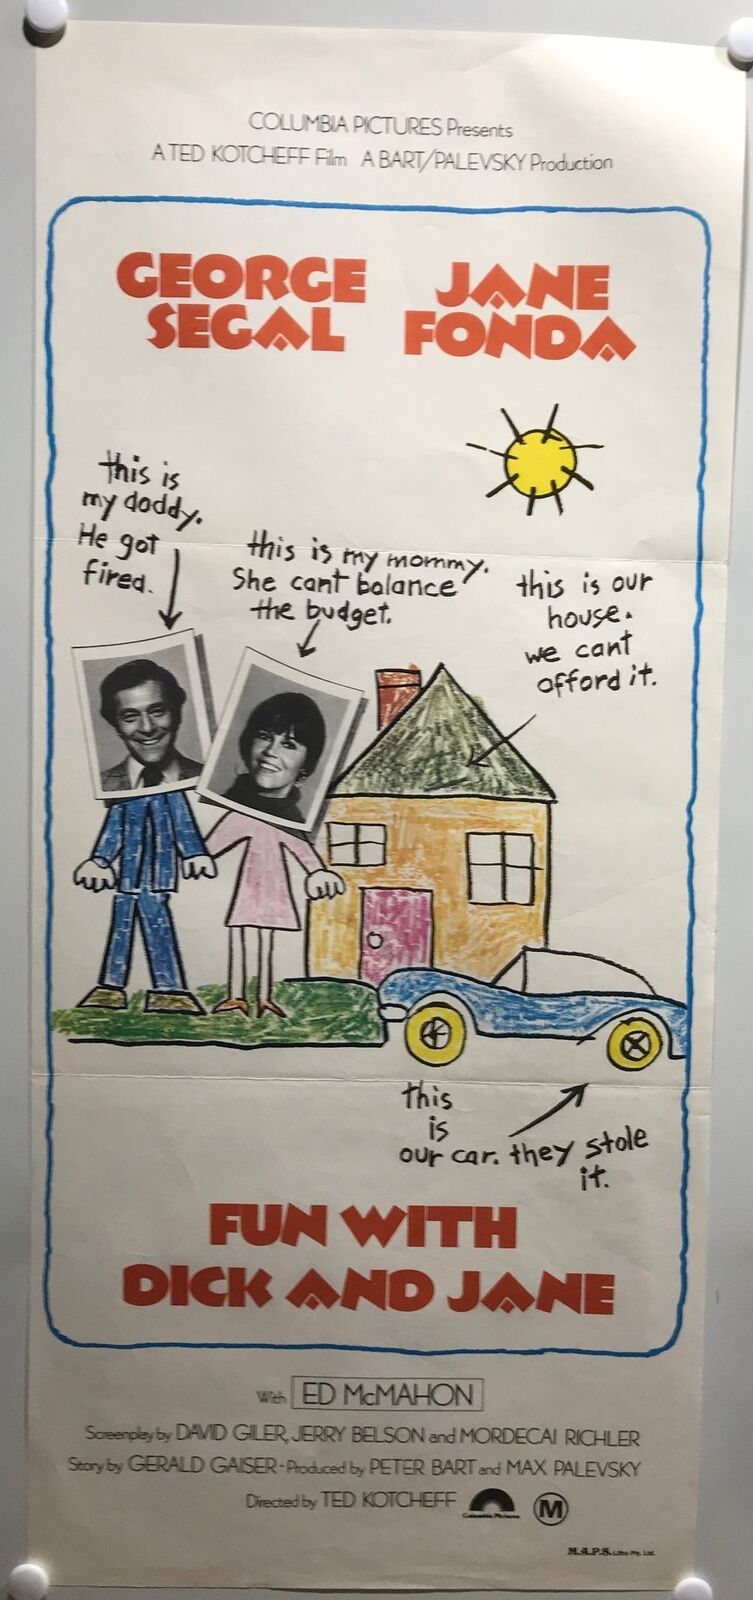 COLUMBIA PICTURES Presents
A TED KOTCHEFF Film A BART/PALEVSKY Production
GEORGE SEGAL
JANE FONDA
this is
my doddy.
He got
fired.
this is my mommy.
She cant balance
the budget.
this is our
house.
we cant
afford it.
this
is
our car. they stole
it.
FUN WITH
DICK AND JANE
With ED McMAHON
Screenplay by DAVID GILER, JERRY BELSON and MORDECAI RICHLER
Story by GERALD GAISER - Produced by PETER BART and MAX PALEVSKY
Directed by TED KOTCHEFF
Columbia Pictures
M
M.A.P.S. Litho Pty. Ltd.